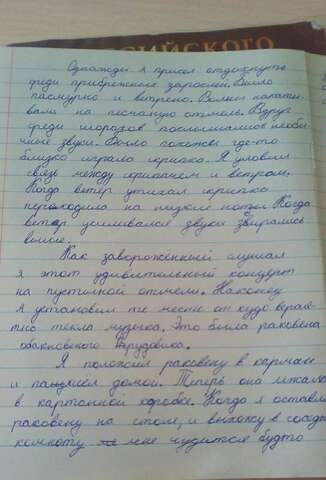 ССИЙСКОГО
Однажды я присел отдохнуть
среди прибрежных зарослей. Было
пасмурно и ветрено. Волны накаты-
вали на песчаную отмель. Вдруг
среди шорохов послышались необы-
чные звуки. Было похоже где-то
близко играла скрипка. Я уловил
связь между скрипачем и ветром.
Когда ветер утихал скрипка
переходила на низкие ноты. Когда
ветер усиливался звуки взбирались
выше.
Как завороженный слушал
я этот удивительный концерт
на пустынной отмели. Наконец
я установил то место от куда
текла музыка. Это была раковина
обыкновеного
Я положил раковину в карман
и домой. Теперь она лежала
в картонной коробке. Когда я оставля
раковину на столе, и выхожу в сосед
комнату мне чудится будто